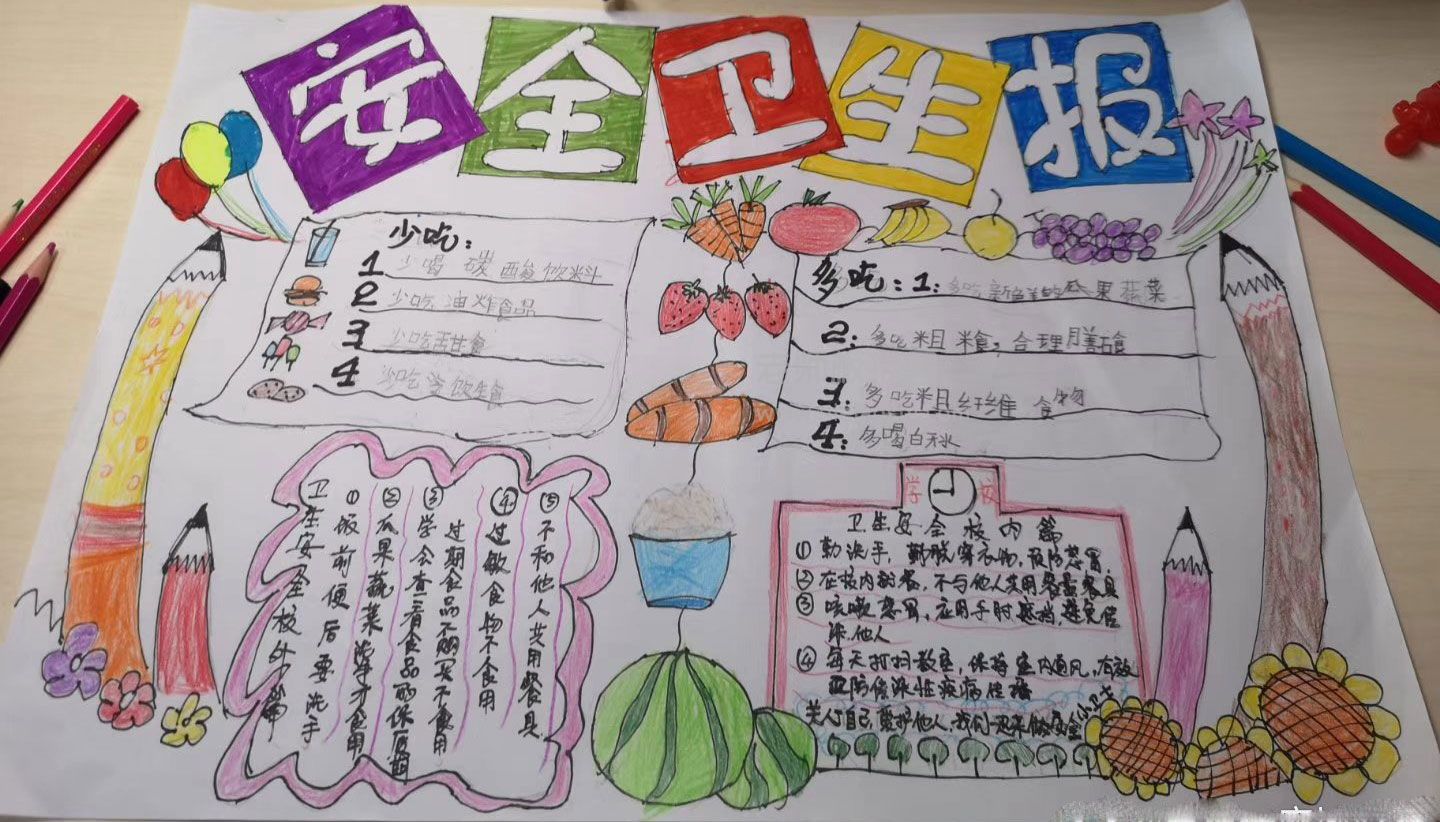 安全卫生报
少吃：
1 少喝碳酸饮料
2 少吃油炸食品
3 少吃甜食
4 少吃
多吃：1：多吃新鲜的水果蔬菜
2：多吃粗粮，合理膳食
3：多吃粗纤维食物
4：多喝白开水
卫生安全校外篇
①饭前便后要洗手
②瓜果蔬菜洗净才食用
③学会查看食品的保质期
过期食品不购买不食用
④过敏食物不食用
⑤不和他人共用餐具
学校
卫生安全校内篇
①勤洗手，勤脱穿衣物，预防感冒，
②在校内就餐，不与他人共用餐具
③咳嗽感冒，应用手肘遮挡，避免传
染他人
④每天打扫教室，保持室内通风，有效
预防传染性疾病传播
关心自己爱护他人，我们一起来做安全小卫士